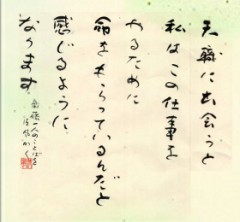 天職に出会うと
私はこの仕事を
やるために
命をもらっているんだと
感じるように
なります